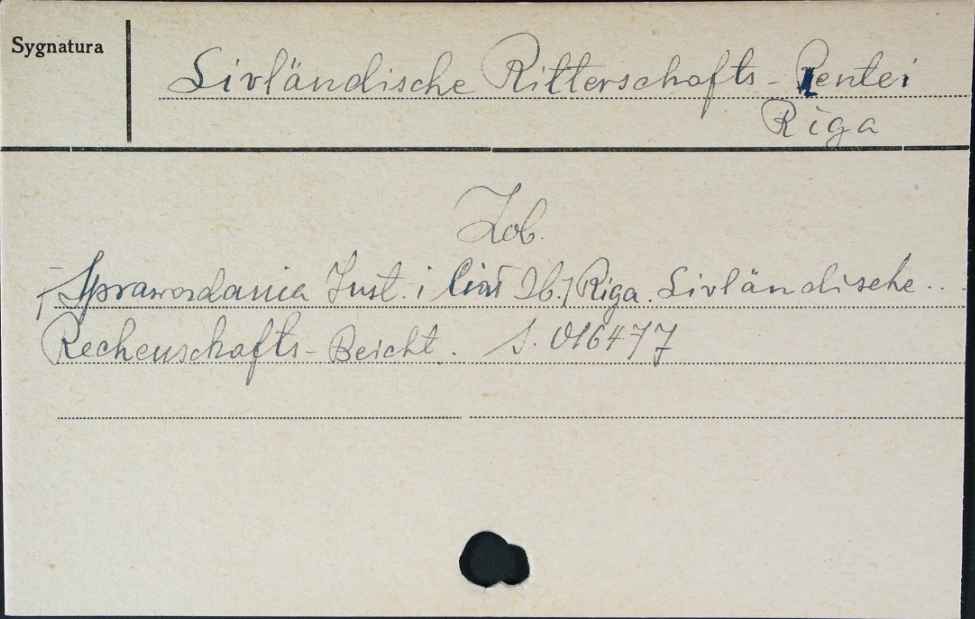 Sygnatura
Livländische Ritterschafts-Rentei
Riga
Zob.
/Sprawozdania Inst. i Ciał Zb./ Riga. Livländische...
Rechenschafts-Beicht. S. 016477